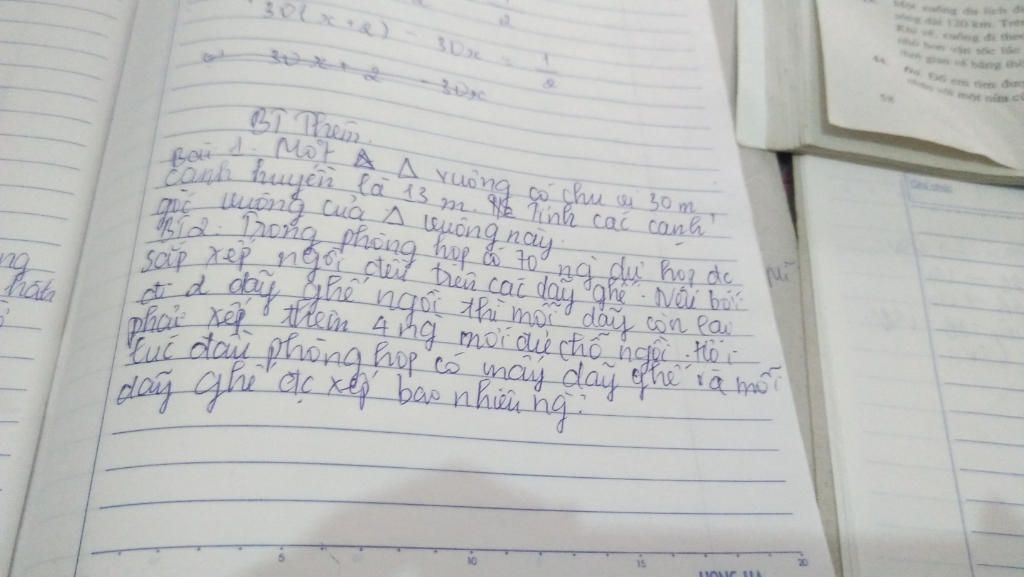 30(x+2) - 30x = 1/2
30x + 2 - 30x
BT Thêm.
Bài 1. Một Δ vuông có chu vi 30 m,
cạnh huyền là 13 m. Tính các cạnh
góc vuông của Δ vuông này.
B2. Trong phòng họp có 70 ng dự họp đc
sắp xếp ngồi đều trên các dãy ghế. Nếu bớt
đi 2 dãy ghế ngồi thì mỗi dãy còn lại
phải xếp thêm 4 ng mới đủ chỗ ngồi. Hỏi
lúc đầu phòng họp có mấy dãy ghế và mỗi
dãy ghế đc xếp bao nhiêu ng?
5 10 15 20
sông dài 120 km.
58